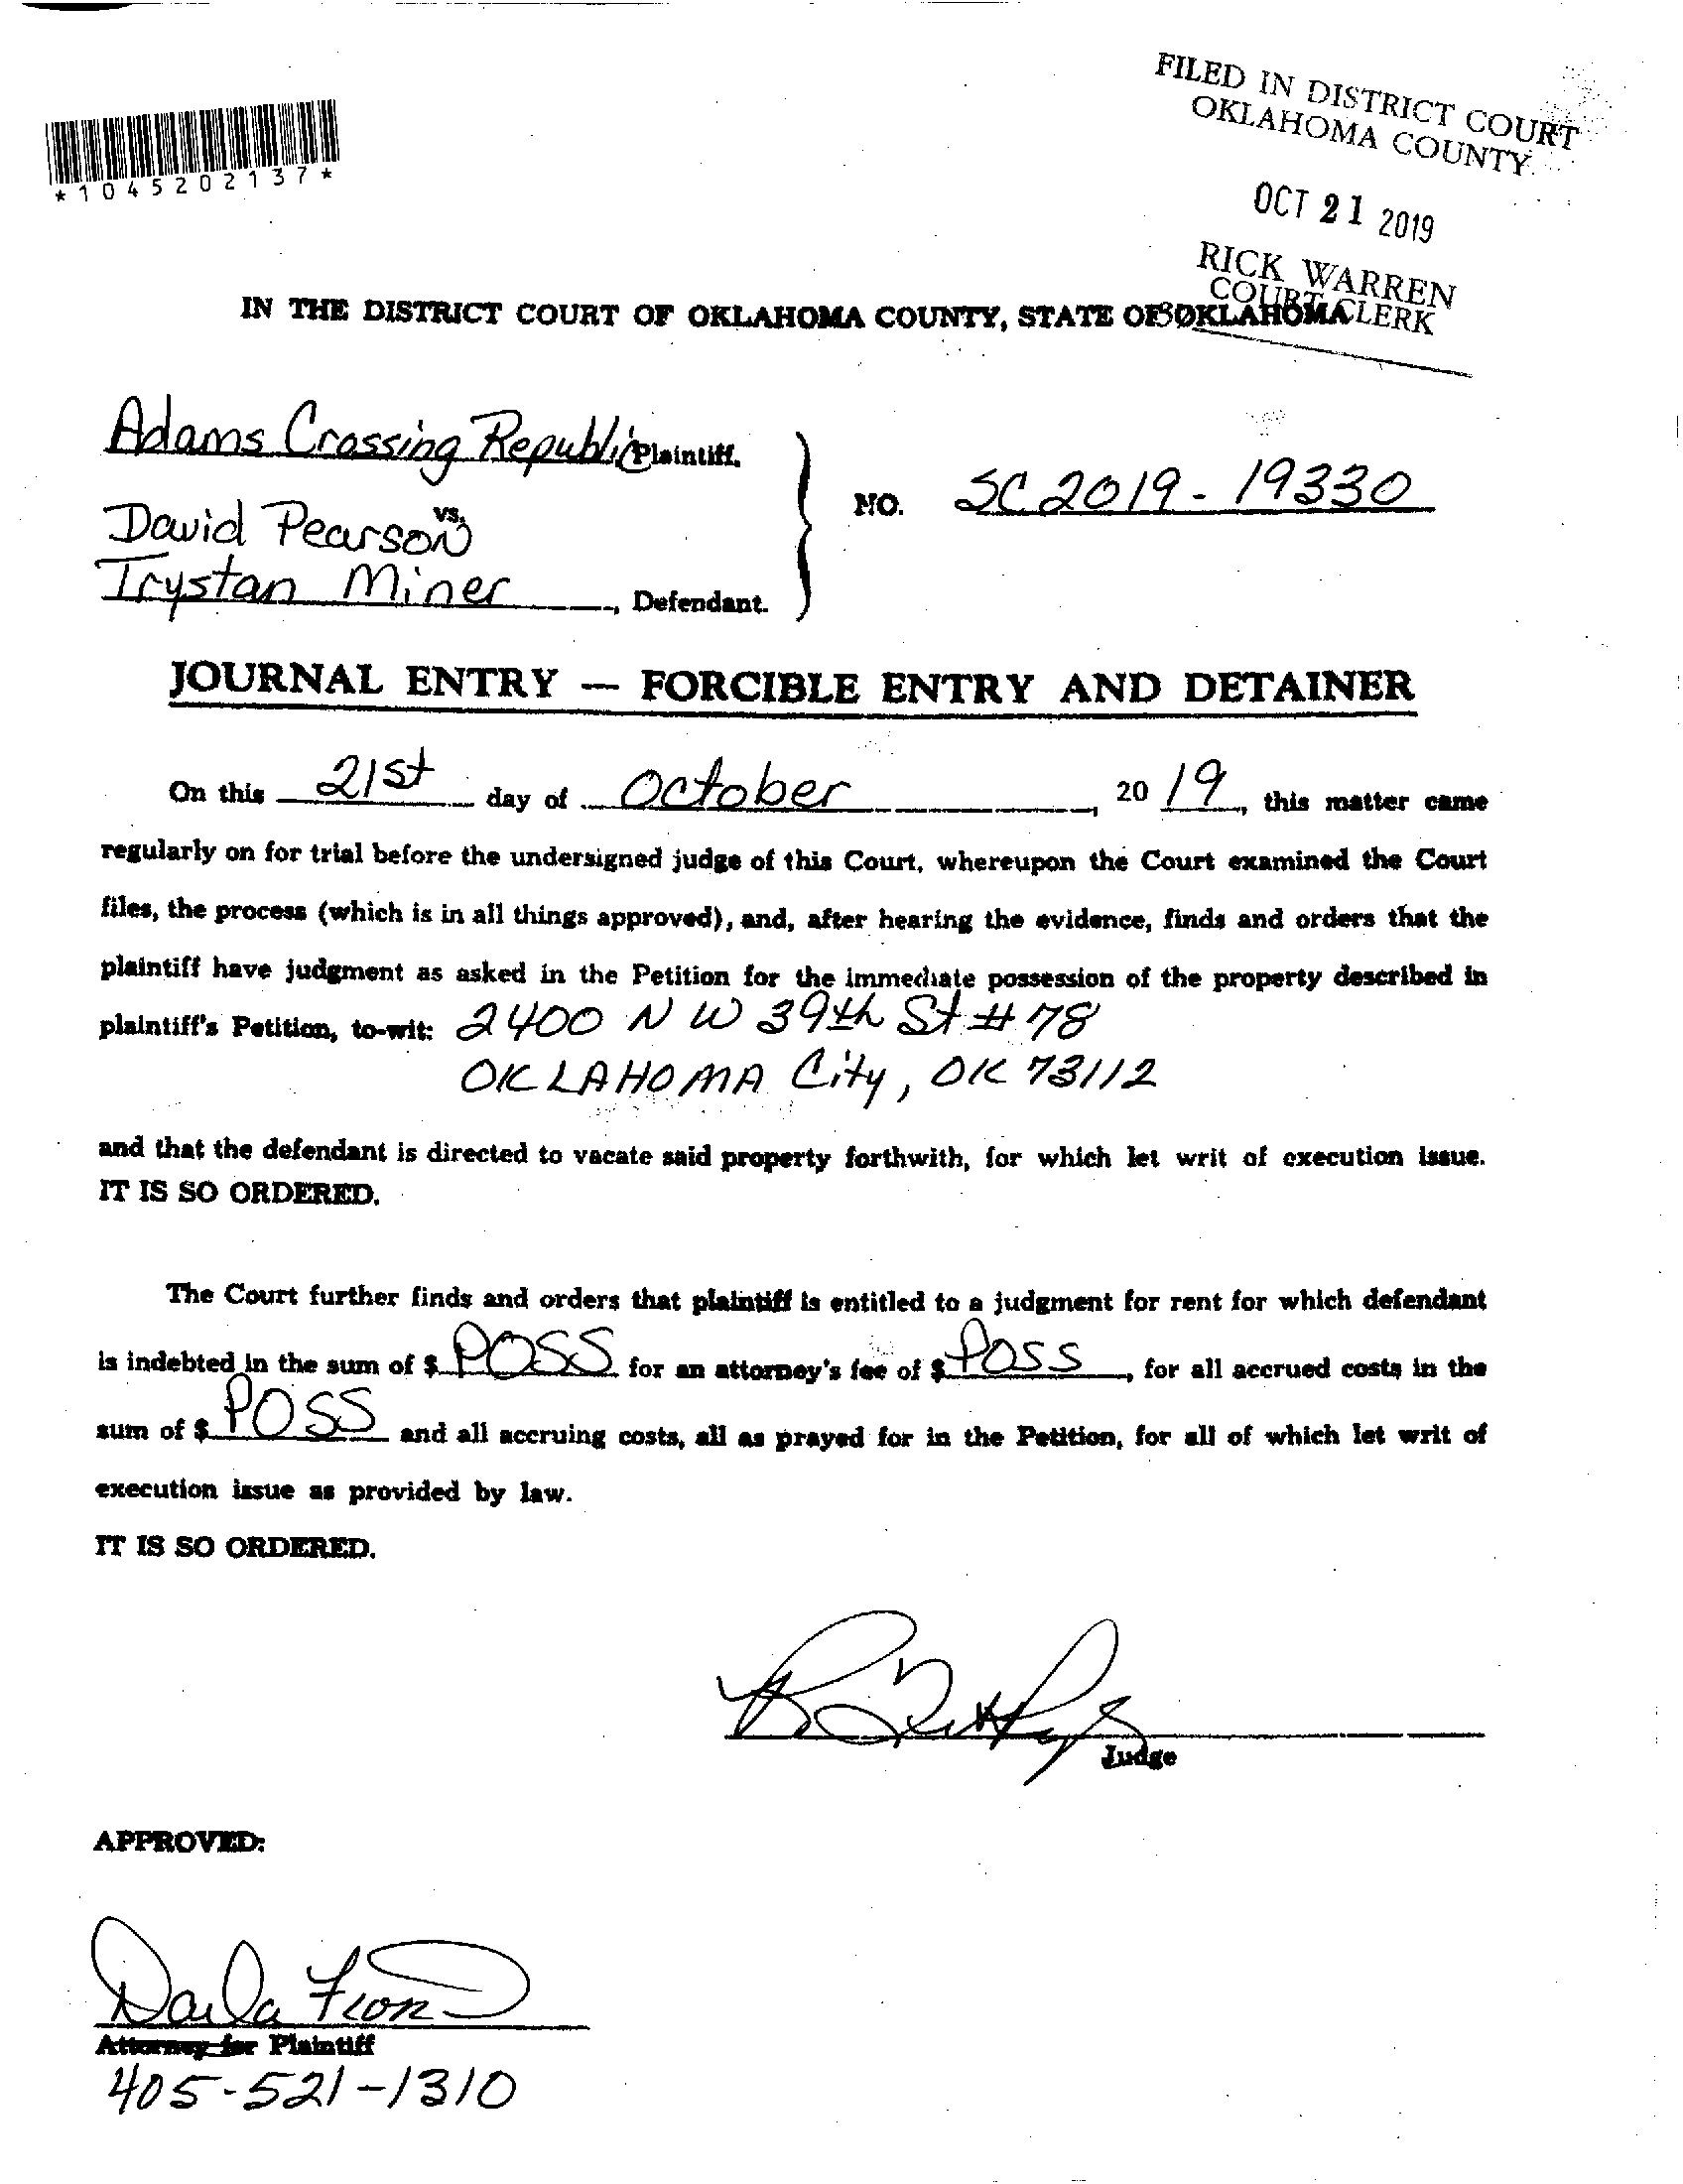 FILED IN DISTRICT COURT
OKLAHOMA COUNTY
OCT 21 2019
RICK WARREN
COURT CLERK
*1045202137*
IN THE DISTRICT COURT OF OKLAHOMA COUNTY, STATE OF OKLAHOMA
Adams Crossing Republic Plaintiff,
vs.
David Pearson
Trystan Miner, Defendant.
NO. SC 2019-19330
JOURNAL ENTRY — FORCIBLE ENTRY AND DETAINER
On this 21st day of October, 20 19, this matter came
regularly on for trial before the undersigned judge of this Court, whereupon the Court examined the Court
files, the process (which is in all things approved), and, after hearing the evidence, finds and orders that the
plaintiff have judgment as asked in the Petition for the immediate possession of the property described in
plaintiff's Petition, to-wit: 2400 NW 39th St #78
OKLAHOMA City, OK 73112
and that the defendant is directed to vacate said property forthwith, for which let writ of execution issue.
IT IS SO ORDERED.
The Court further finds and orders that plaintiff is entitled to a judgment for rent for which defendant
is indebted in the sum of $ POSS for an attorney's fee of $ POSS, for all accrued costs in the
sum of $ POSS and all accruing costs, all as prayed for in the Petition, for all of which let writ of
execution issue as provided by law.
IT IS SO ORDERED.
Judge
APPROVED:
Darla
Attorney for Plaintiff
405-521-1310